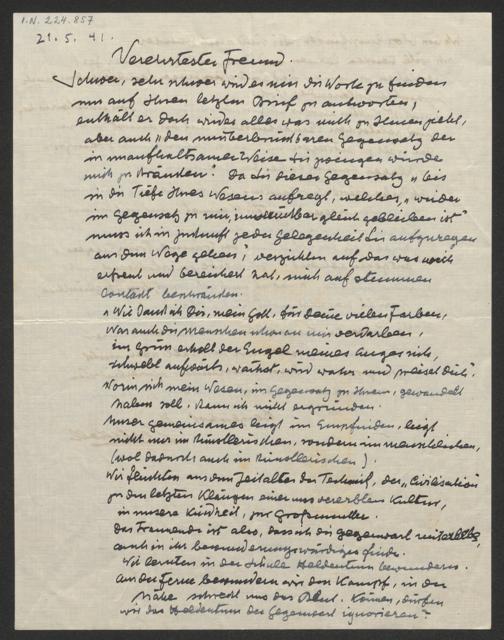 I.N. 224.857
21. 5. 41.
Verehrtester Freund.
Schwer, sehr schwer wird es mir die Worte zu finden
um auf Ihren letzten Brief zu antworten,
enthält er doch wieder alles was mich zu Ihnen zieht,
aber auch „den unüberbrückbaren Gegensatz der
in unaufhaltsamer Weise Sie zwingen würde
mich zu kränken". Da Sie dieser Gegensatz „bis
in die Tiefe Ihres Wesens aufregt, welches, wieder
im Gegensatz zu mir, gleich geblieben ist"
muss ich in Zukunft jeder Gelegenheit Sie aufzuregen
aus dem Wege gehen, verzichten auf das was mich
erfreut und bereichert hat, mich auf stummen
Contact beschränken.
„Wie dank ich Dir, mein Gott, für Deine vielen Farben,
Was auch die Menschen schon an mir verdarben,
im Grün erholt der Engel meines Auges sich,
schwebt aufwärts, wächst, wird wahr und preiset Dich."
Worin sich mein Wesen, im Gegensatz zu Ihrem, gewandelt
haben soll, kann ich nicht ergründen.
Unser gemeinsames liegt im Empfinden, liegt
nicht nur im Künstlerischen, sondern im menschlichen,
(wohl dadurch auch im Künstlerischen).
Wir flüchten aus dem Zeitalter der Technik, der „Civilisation"
zu den letzten Klängen einer uns vererbten Kultur,
in unsere Kindheit, zur Grossmutter.
Das Trennende ist also, dass ich die Gegenwart miterlebe,
auch in ihr bewunderungswürdiges finde.
Wir lernten in der Schule Heldentum bewundern.
Aus der Ferne bewundern wir den Kampf, in der
Nähe schreckt uns das Blut. Können, dürfen
wir das Heldentum der Gegenwart ignorieren?